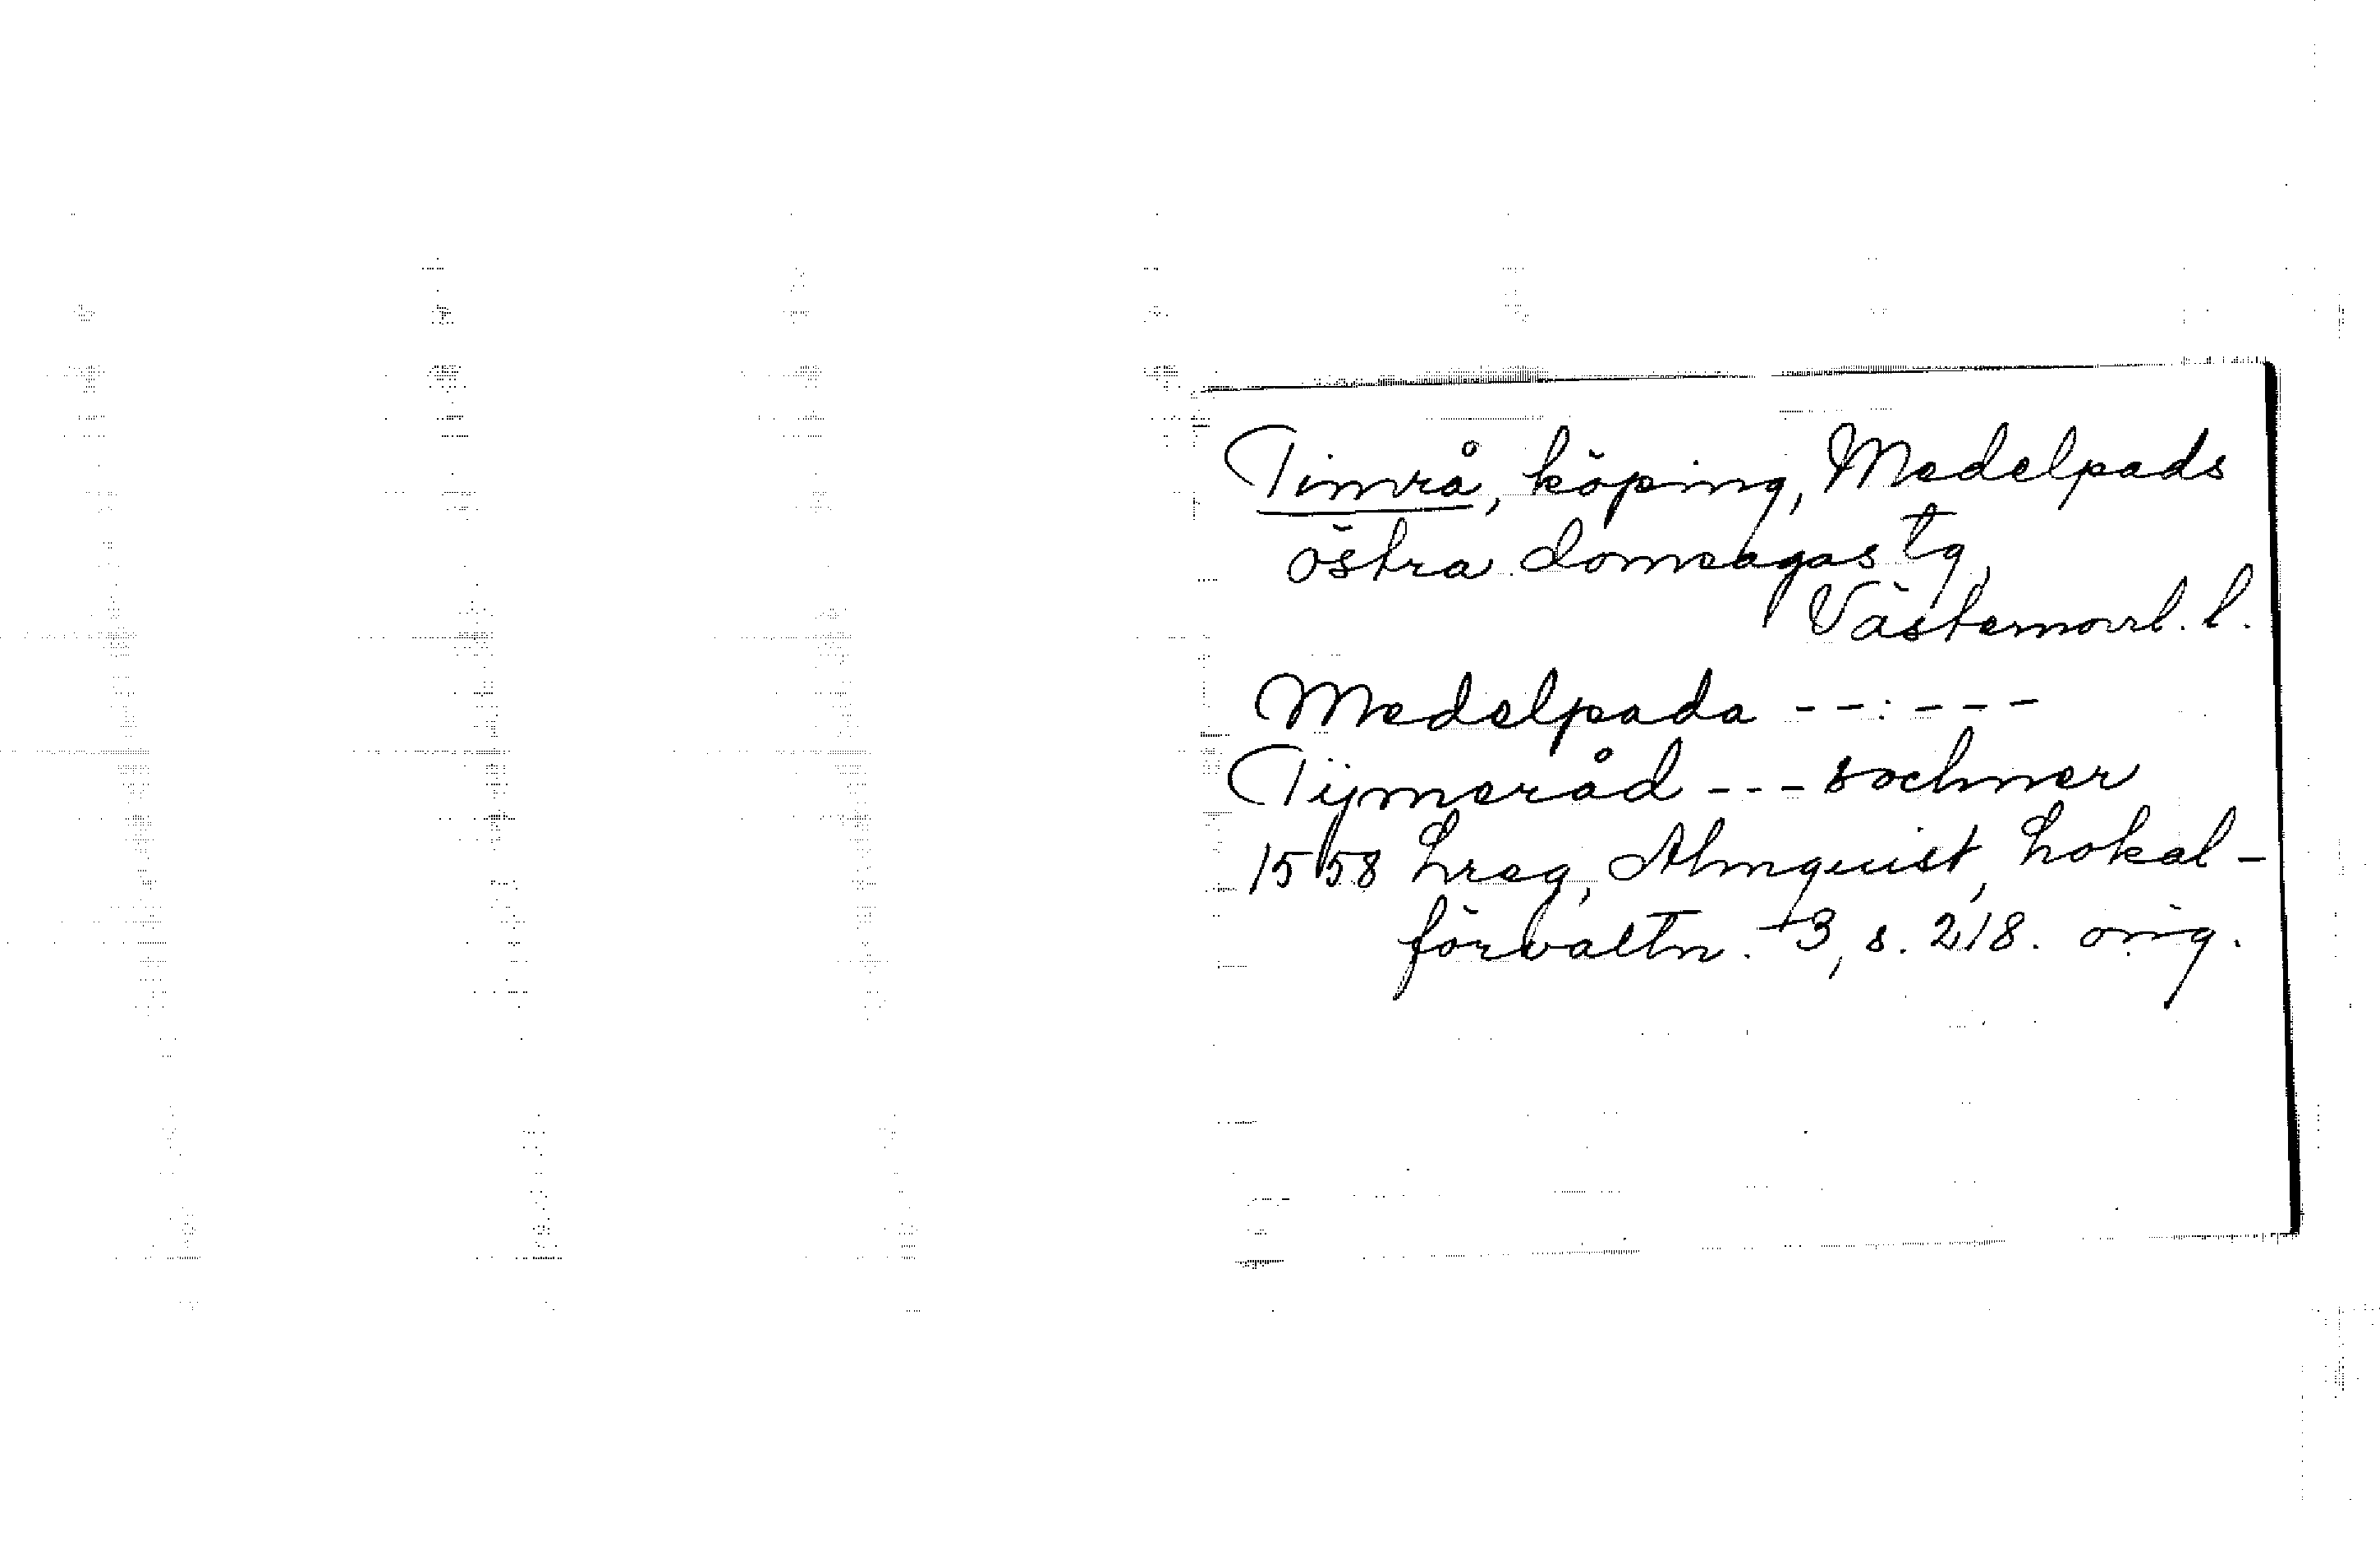 Timrå, köping, Medelpads
östra domsagas tg,
Västernorrl. l.
Medelpada - - : - - -
Tijmeråd - - - sochner
1558 Lreg, Almquist, Lokal-
förvaltn. 3, s. 218. orig.